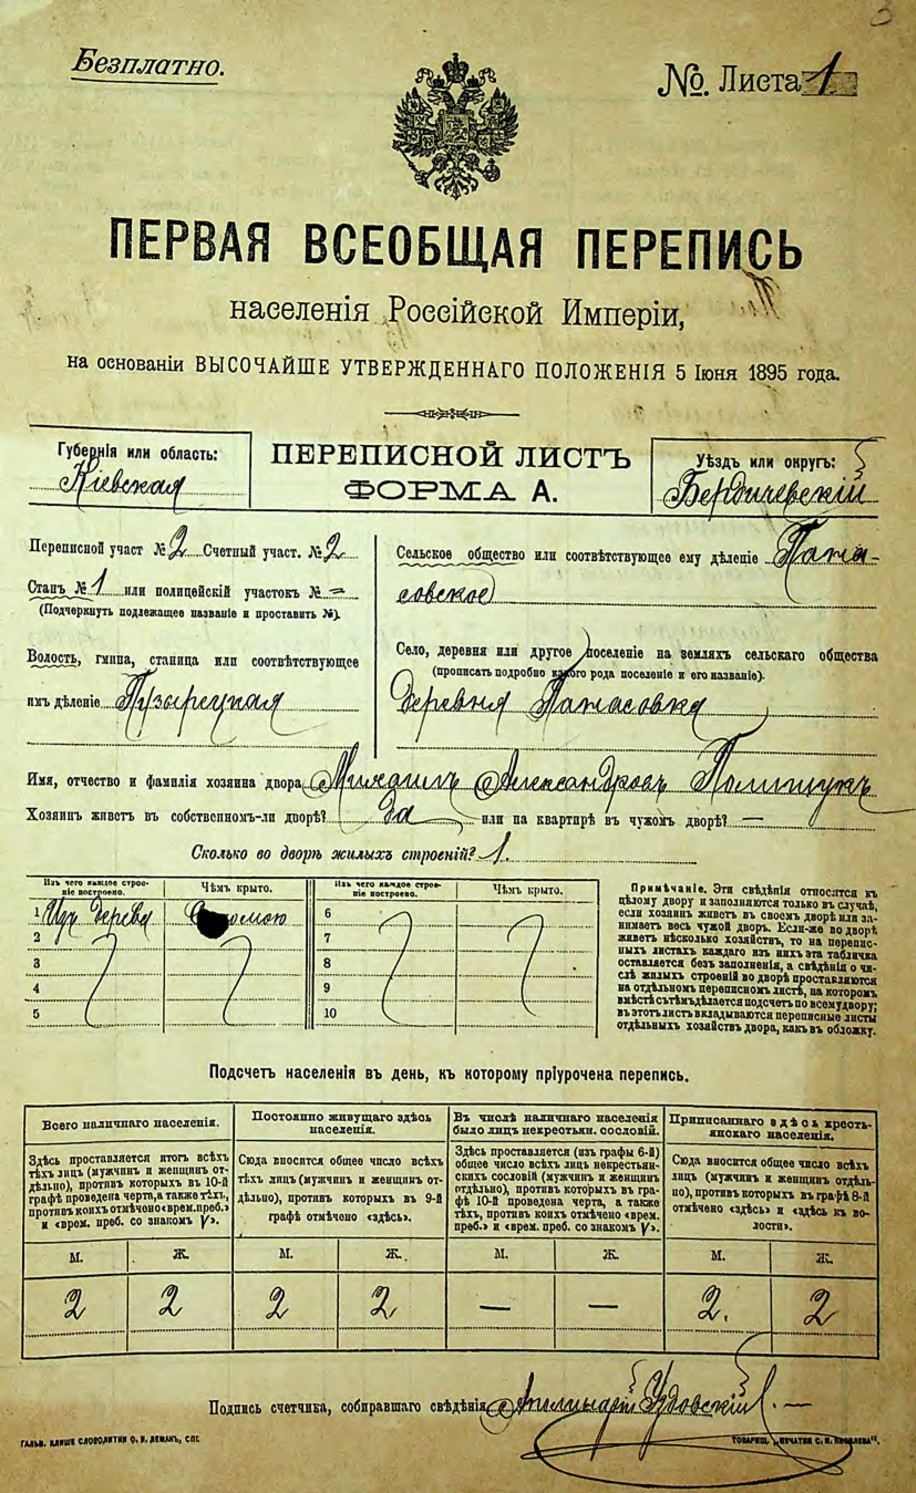 Безплатно.
№. Листа 1
ПЕРВАЯ ВСЕОБЩАЯ ПЕРЕПИСЬ
населенія Россійской Имперіи,
на основаніи ВЫСОЧАЙШЕ УТВЕРЖДЕННАГО ПОЛОЖЕНІЯ 5 Іюня 1895 года.
Губернія или область:
Кіевская
ПЕРЕПИСНОЙ ЛИСТЪ
ФОРМА А.
Уѣздъ или округъ:
Бердичевскій
Переписной участ № 2 Счетный участ. № 2
Станъ № 1 или полицейскій участокъ № =
(Подчеркнуть подлежащее названіе и проставить №).
Волость, гмина, станица или соотвѣтствующее
имъ дѣленіе Пузырецкая
Сельское общество или соотвѣтствующее ему дѣленіе Папа-
совское
Село, деревня или другое поселеніе на земляхъ сельскаго общества
(прописать подробно какого рода поселеніе и его названіе).
деревня Папасовка
Имя, отчество и фамилія хозяина двора Михаилъ Александровъ Полищукъ
Хозяинъ живетъ въ собственномъ-ли дворѣ? да или на квартирѣ въ чужомъ дворѣ? —
Сколько во дворѣ жилыхъ строеній? 1.
Изъ чего каждое строе-
ніе построено.
Чѣмъ крыто.
Изъ чего каждое строе-
ніе построено.
Чѣмъ крыто.
1 Изъ дерева Соломою 6
2 7
3 8
4 9
5 10
Примѣчаніе. Эти свѣдѣнія относятся къ
цѣлому двору и заполняются только въ случаѣ,
если хозяинъ живетъ въ своемъ дворѣ или за-
нимаетъ весь чужой дворъ. Если-же во дворѣ
живетъ нѣсколько хозяйствъ, то на перепис-
ныхъ листахъ каждаго изъ нихъ эта табличка
оставляется безъ заполненія, а свѣдѣнія о чи-
слѣ жилыхъ строеній во дворѣ проставляются
на отдѣльномъ переписномъ листѣ, на которомъ
вмѣстѣ съ тѣмъ дѣлается подсчетъ по всему двору;
въ этотъ листъ вкладываются переписные листы
отдѣльныхъ хозяйствъ двора, какъ въ обложку.
Подсчетъ населенія въ день, къ которому пріурочена перепись.
Всего наличнаго населенія.
Здѣсь проставляется итогъ всѣхъ
тѣхъ лицъ (мужчинъ и женщинъ от-
дѣльно), противъ которыхъ въ 10-й
графѣ проведена черта, а также тѣхъ,
противъ коихъ отмѣчено «врем. преб.»
и «врем. преб. со знакомъ V».
Постоянно живущаго здѣсь
населенія.
Сюда вносится общее число всѣхъ
тѣхъ лицъ (мужчинъ и женщинъ от-
дѣльно), противъ которыхъ въ 9-й
графѣ отмѣчено «здѣсь».
Въ числѣ наличнаго населенія
было лицъ некрестьян. сословій.
Здѣсь проставляется (изъ графы 6-й)
общее число всѣхъ лицъ некрестьян-
скихъ сословій (мужчинъ и женщинъ
отдѣльно), противъ которыхъ въ гра-
фѣ 10-й проведена черта, а также
тѣхъ, противъ коихъ отмѣчено «врем.
преб.» и «врем. преб. со знакомъ V».
Приписаннаго здѣсь кресть-
янскаго населенія.
Сюда вносится общее число всѣхъ
лицъ (мужчинъ и женщинъ отдѣль-
но), противъ которыхъ въ графѣ 8-й
отмѣчено «здѣсь» и «здѣсь къ во-
лости».
М. Ж. М. Ж. М. Ж. М. Ж.
2 2 2 2 — — 2. 2
Подпись счетчика, собиравшаго свѣдѣнія
ГАЛЬВ. КЛИШЕ СЛОВОЛИТНИ О. И. ЛЕМАНЪ, СПБ.
ТОВАРИЩ. „ПЕЧАТНЯ С. П. ЯКОВЛЕВА“.